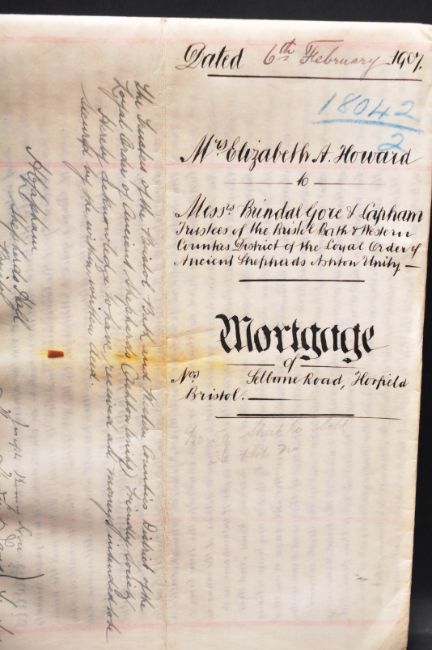 Dated 6th February 1907.
18042
2
Mrs Elizabeth A. Howard
to
Messrs Brindal Gore & Lapham
Trustees of the Bristol Bath & Western
Counties District of the Loyal Order of
Ancient Shepherds Ashton Unity —
Mortgage
of
Nos Selborne Road, Horfield
Bristol.
The Trustees of the Bristol Bath and Western Counties District of the
Loyal Order of Ancient Shepherds (Ashton Unity) Friendly Society
hereby acknowledge to have received all moneys intended to be
secured by the within written deed.
Lapham
Shepherds Hall
Bristol
Joseph Henry Gore